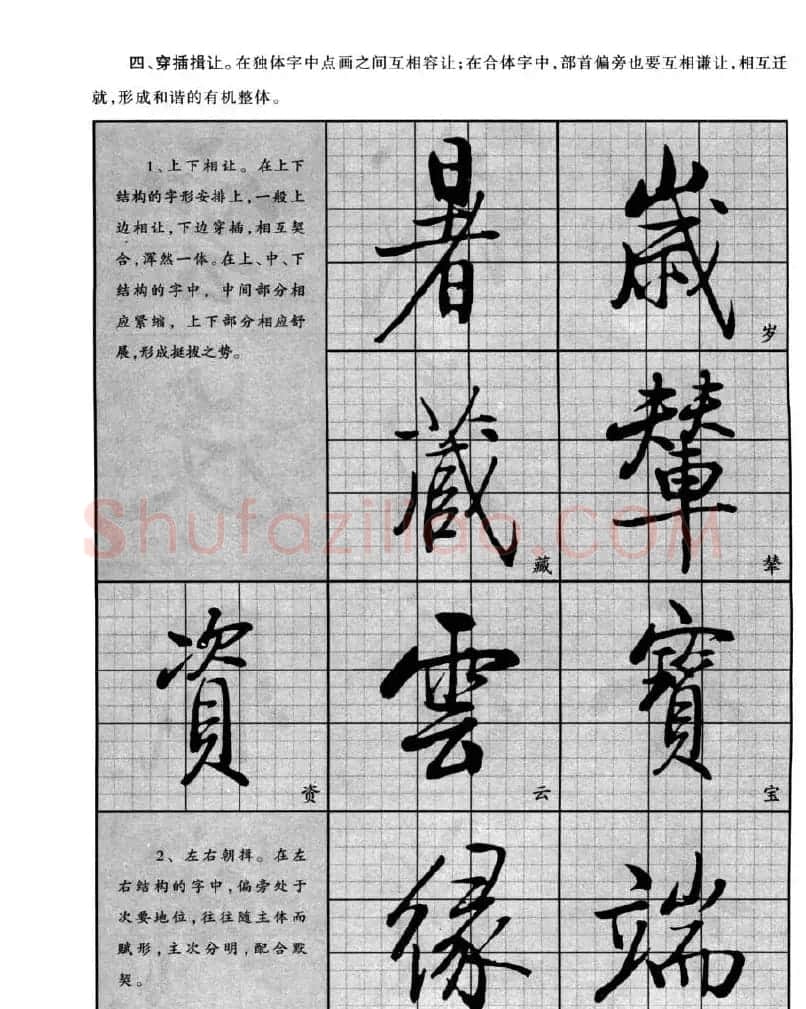 四、穿插揖让。在独体字中点画之间互相容让;在合体字中,部首偏旁也要互相谦让,相互迁
就,形成和谐的有机整体。
1、上下相让。在上下
结构的字形安排上,一般上
边相让,下边穿插,相互契
合,浑然一体。在上、中、下
结构的字中,中间部分相
应紧缩,上下部分相应舒
展,形成挺拔之势。
暑
歲
岁
藏
藏
輦
辇
Shufaziliao.COM
資
资
雲
云
寶
宝
2、左右朝揖。在左
右结构的字中,偏旁处于
次要地位,往往随主体而
赋形,主次分明,配合默
契。
缘
端